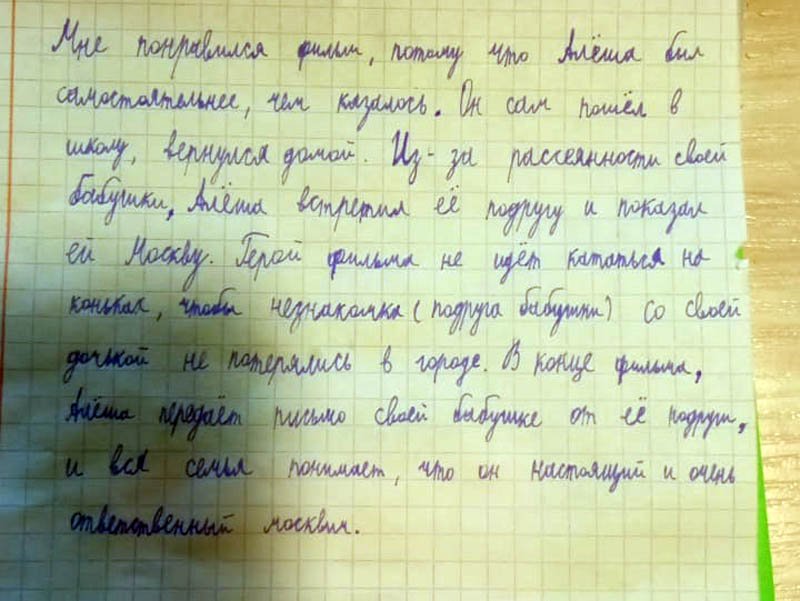 Мне понравился фильм, потому что Алёша был
самостоятельнее, чем казалось. Он сам пошёл в
школу, вернулся домой. Из-за рассеянности своей
бабушки, Алёша встретил её подругу и показал
ей Москву. Герой фильма не идёт кататься на
коньках, чтобы незнакомка (подруга бабушки) со своей
дочькой не потерялись в городе. В конце фильма,
Алёша передаёт письмо своей бабушке от её подруги,
и вся семья понимает, что он настоящий и очень
ответственный москвич.